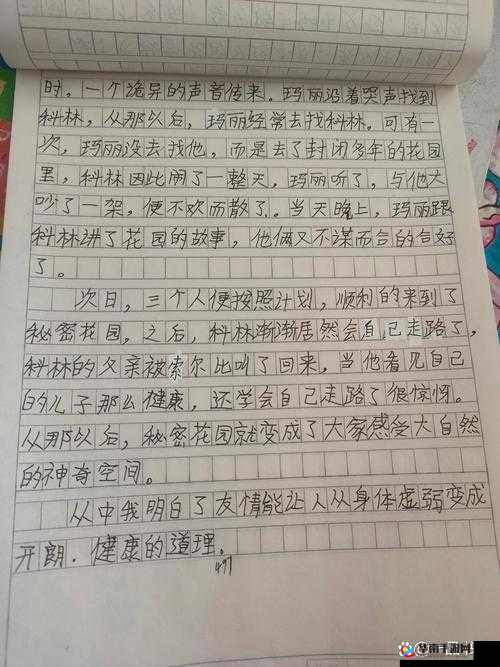 时。一个诡异的声音传来。玛丽沿着哭声找到
科林，从那以后，玛丽经常去找科林。可有一
次，玛丽没去找他，而是去了封闭多年的花园
里，科林因此闹了一整天，玛丽听了，与他大
吵了一架，便不欢而散了。当天晚上，玛丽跟
科林讲了花园的故事，他俩又不谋而合的合好
了。
次日，三个人便按照计划，顺利的来到了
秘密花园，之后，科林渐渐居然会自己走路了，
科林的父亲被索尔比叫了回来，当他看见自己
的儿子那么健康，还学会自己走路了很惊讶。
从那以后，秘密花园就变成了大家感受大自然
的神奇空间。
从中我明白了友情能让人从身体虚弱变成
开朗．健康的道理。
497
华南手游网